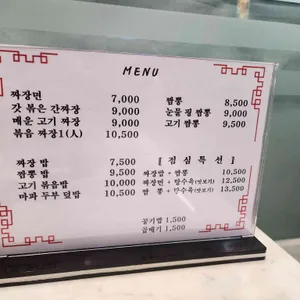 MENU
짜장면 7,000
갓 볶은 간짜장 9,000
매운 고기 짜장 9,000
볶음 짜장1(人) 10,500
짬뽕 8,500
눈물 핑 짬뽕 9,000
고기 짬뽕 9,500
짜장 밥 7,500
짬뽕 밥 9,500
고기 볶음밥 10,000
마파 두부 덮밥 10,500
[ 점심특선 ]
짜장밥 + 짬뽕 10,500
짜장면 + 탕수육(맛보기) 12,500
짬 뽕 + 탕수육(맛보기) 13,500
공기밥 1,500
곱배기 1,500